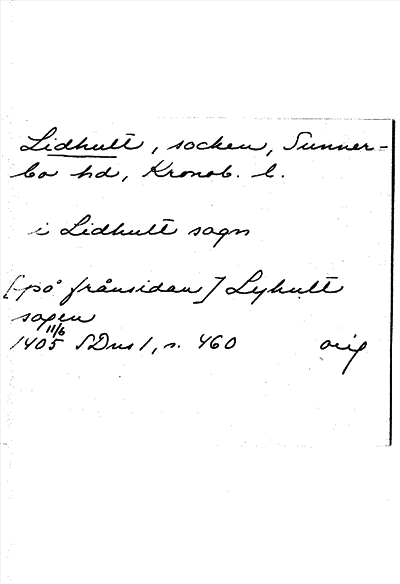 Lidhult, socken, Sunner-
bo hd, Kronob. l.
i Lidhult sogn
[på frånsidan] Lyhult
sogen
1405 11/6 SDns 1, s. 460 orig